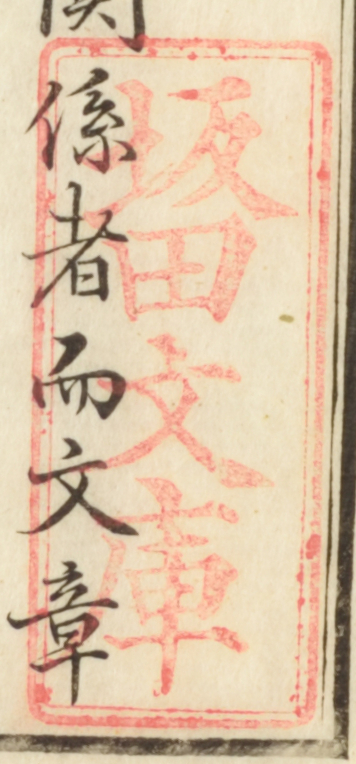 関係者而文章
坂田文庫